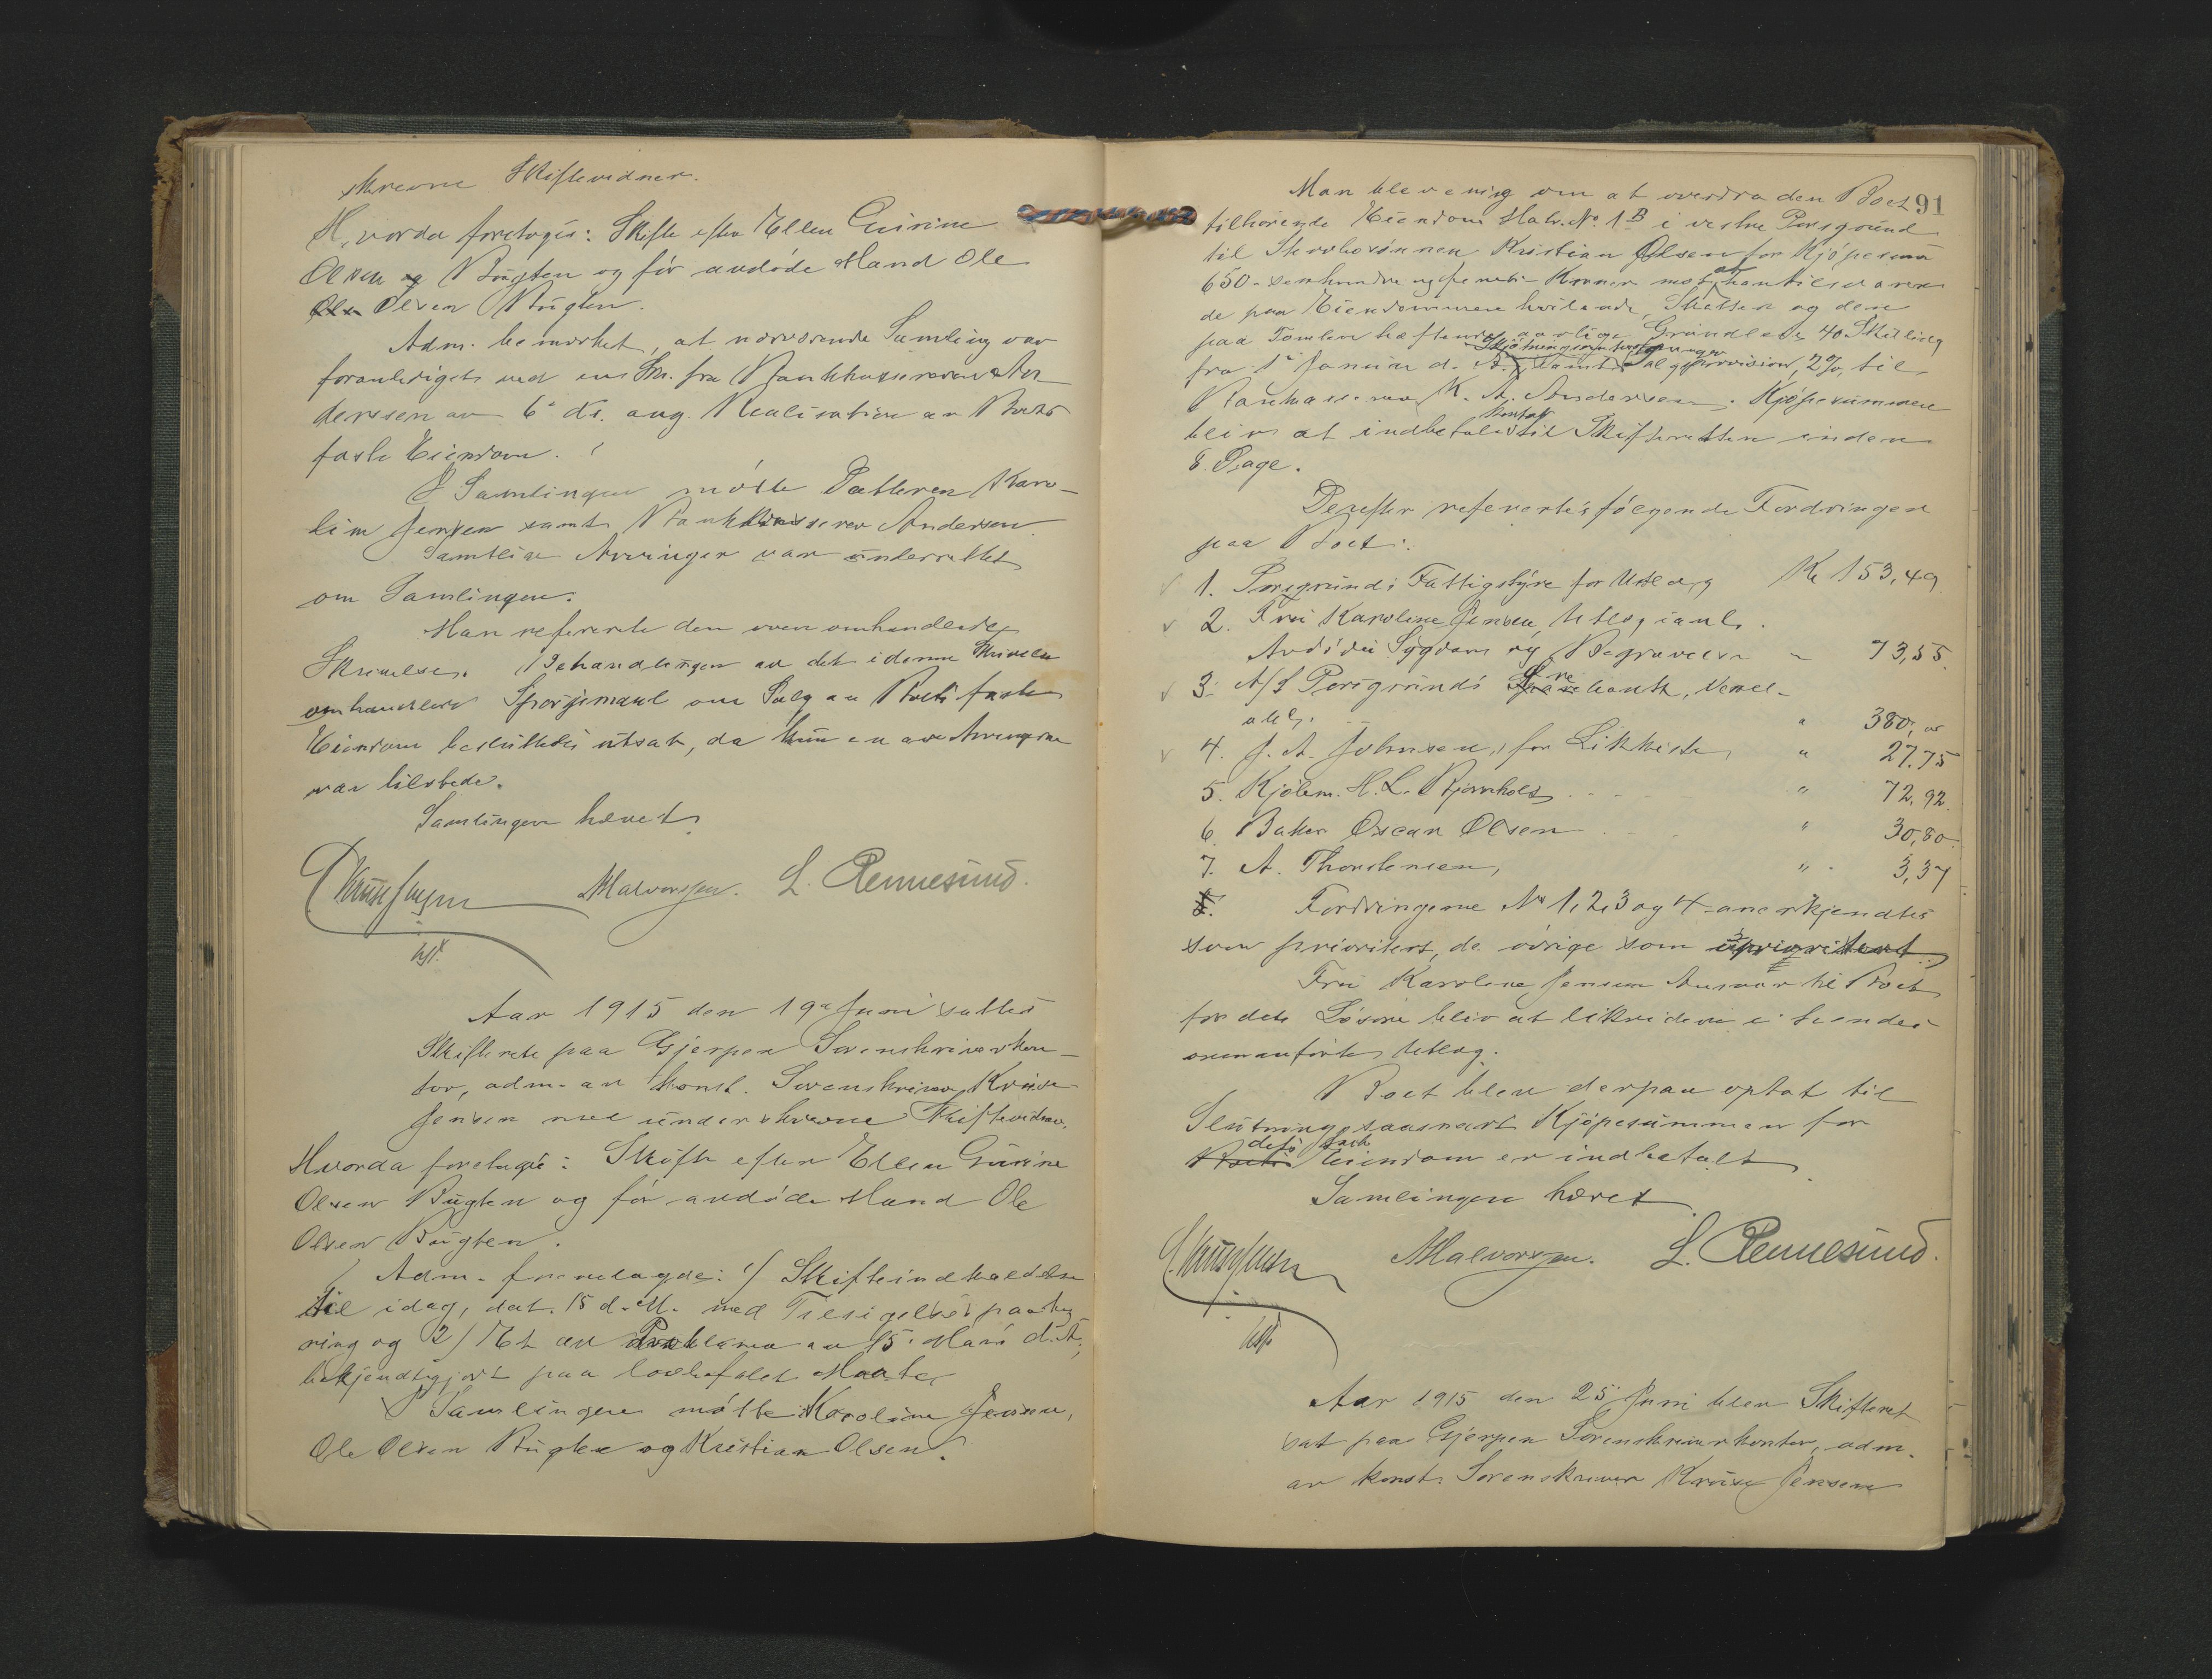 skrevne Skiftevidner.
Hvorda foretoges: Skifte efter Ellen Gurine
Olsen Bugten og før avdøde Mand Ole
Olsen Bugten.
Adm. bemerket, at nærværende Samling var
foranlediget ved en Skr. fra Bankkasserer An-
dersen av 6' ds. ang. Realisation av Boets
faste Eiendom.
I Samlingen møtte Datteren Karo-
line Jensen samt Bankkasserer Andersen.
Samtlige Arvinger var underrettet
om Samlingen.
Man refererte den ovenomhandlede
Skrivelse. Behandlingen av det i denne Skrivelse
omhandlede Spørsmaal om Salg av Boets faste
Eiendom besluttedes utsat, da kun en av Arvingerne
var tilstede.
Samlingen hævet
Kruse Jensen AHalvorsen. L. Rennesund.
kst.
Aar 1915 den 19de Juni sattes
Skifteret paa Gjerpen Sorenskriverkon-
tor, adm. av konst. Sorenskriver Kruse-
Jensen med underskrevne Skiftevidner.
Hvorda foretoges: Skifte efter Ellen Gurine
Olsen Bugten og før avdøde Mand Ole
Olsen Bugten.
Adm. fremlagde: 1/ Skifteindkaldelse
til idag, dat. 15 d. M. med Tilsigelsespaateg-
ning og 2/ Et av Proklama av 15. Mars d. A.,
bekjendtgjort paa lovbefalet Maate.
I Samlingen møtte Karoline Jensen,
Ole Olsen Bugten og Kristian Olsen.
91
Man blev enig om at overdra den Boet
tilhørende Eiendom Matr. No. 1B i vestre Porsgrund
til Stervbosønnen Kristian Olsen for Kjøpesum
650 - sekshundre og femti - Kroner mot at han tilsvarer
de paa Eiendommen hvilende Skatter og den
paa Tomten heftende aarlige Grundleie 40 Skilling
fra 1' Januar d. A., Skjøtningsomkostninger samt Salgsprovision, 2%, til
Bankkasserer K. A. Andersen. Kjøpesummen
blir at indbetale kontant til Skifteretten inden
8 Dage.
Derefter refertes følgende Fordringer
paa Boet:
1. Porsgrunds Fattigstyre for Utlæg Kr 153,49
2. Fru Karoline Jensen, Utlæg i anl.
Avdødes Sygdom og Begravelse " 73,55
3. A/S Porsgrunds Sparebank, Veksel-
obl. " 380,00
4. J. A. Johnsen, for Likkiste, " 27,75
5. Kjøbm. H. L. Bjørnholt " 72,92
6. Baker Oscar Olsen " 30,80
7. A. Thorstensen, " 3,37
Fordringerne No 1, 2, 3 og 4 anerkjendtes
som prioritert, de øvrige som uprioritert
Fru Karoline Jensens Ansvar til Boet
for dets Løsøre blir at likvidere i hendes
ovenanførte Utlæg.
Boet blev derpaa optat til
Slutning saasnart Kjøpesummen for
dets faste Eiendom er indbetalt
Samlingen hævet
Kruse Jensen AHalvorsen. L. Rennesund.
kst.
Aar 1915 den 25' Juni blev Skifteret
sat paa Gjerpen Sorenskriverkontor, adm.
av konst. Sorenskriver Kruse Jensen